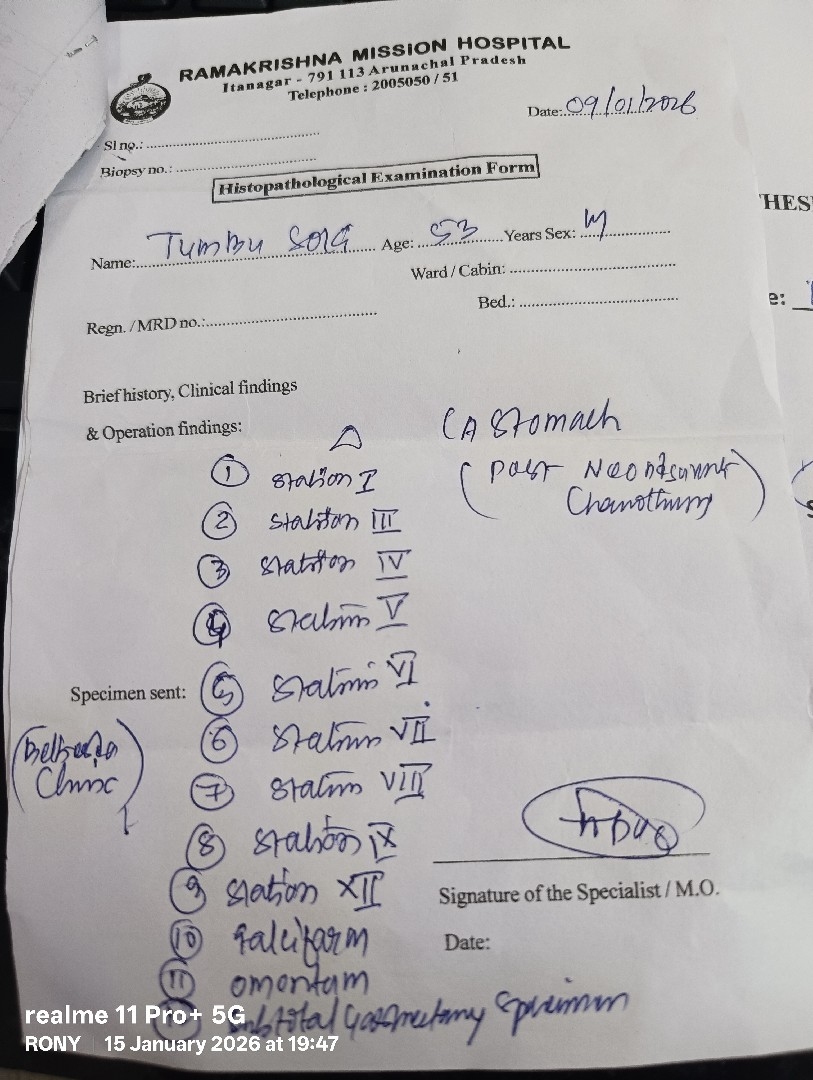 RAMAKRISHNA MISSION HOSPITAL
Itanagar - 791 113 Arunachal Pradesh
Telephone : 2005050 / 51
Date: 09/01/2026
Sl no.:
Biopsy no.:
Histopathological Examination Form
HES
Name: Tumbu Age: 53 Years Sex: M
Ward / Cabin:
e:
Bed.:
Regn. / MRD no.:
Brief history, Clinical findings
& Operation findings:
△ CA Stomach
(Post
① Station I
② Station III
③ Station IV
④ Station V
Specimen sent: ⑤ Station VI
⑥ Station VII
Clinic
⑦ Station VIII
⑧ Station IX
⑨ Station XII
Signature of the Specialist / M.O.
⑩ falcifarm
Date:
⑪ omentam
Subtotal Gastrectomy Specimen
realme 11 Pro+ 5G
RONY 15 January 2026 at 19:47